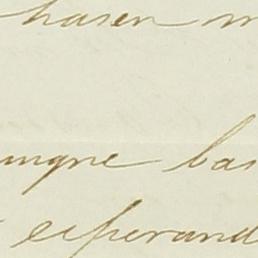 hasen m
unque bas
esperand